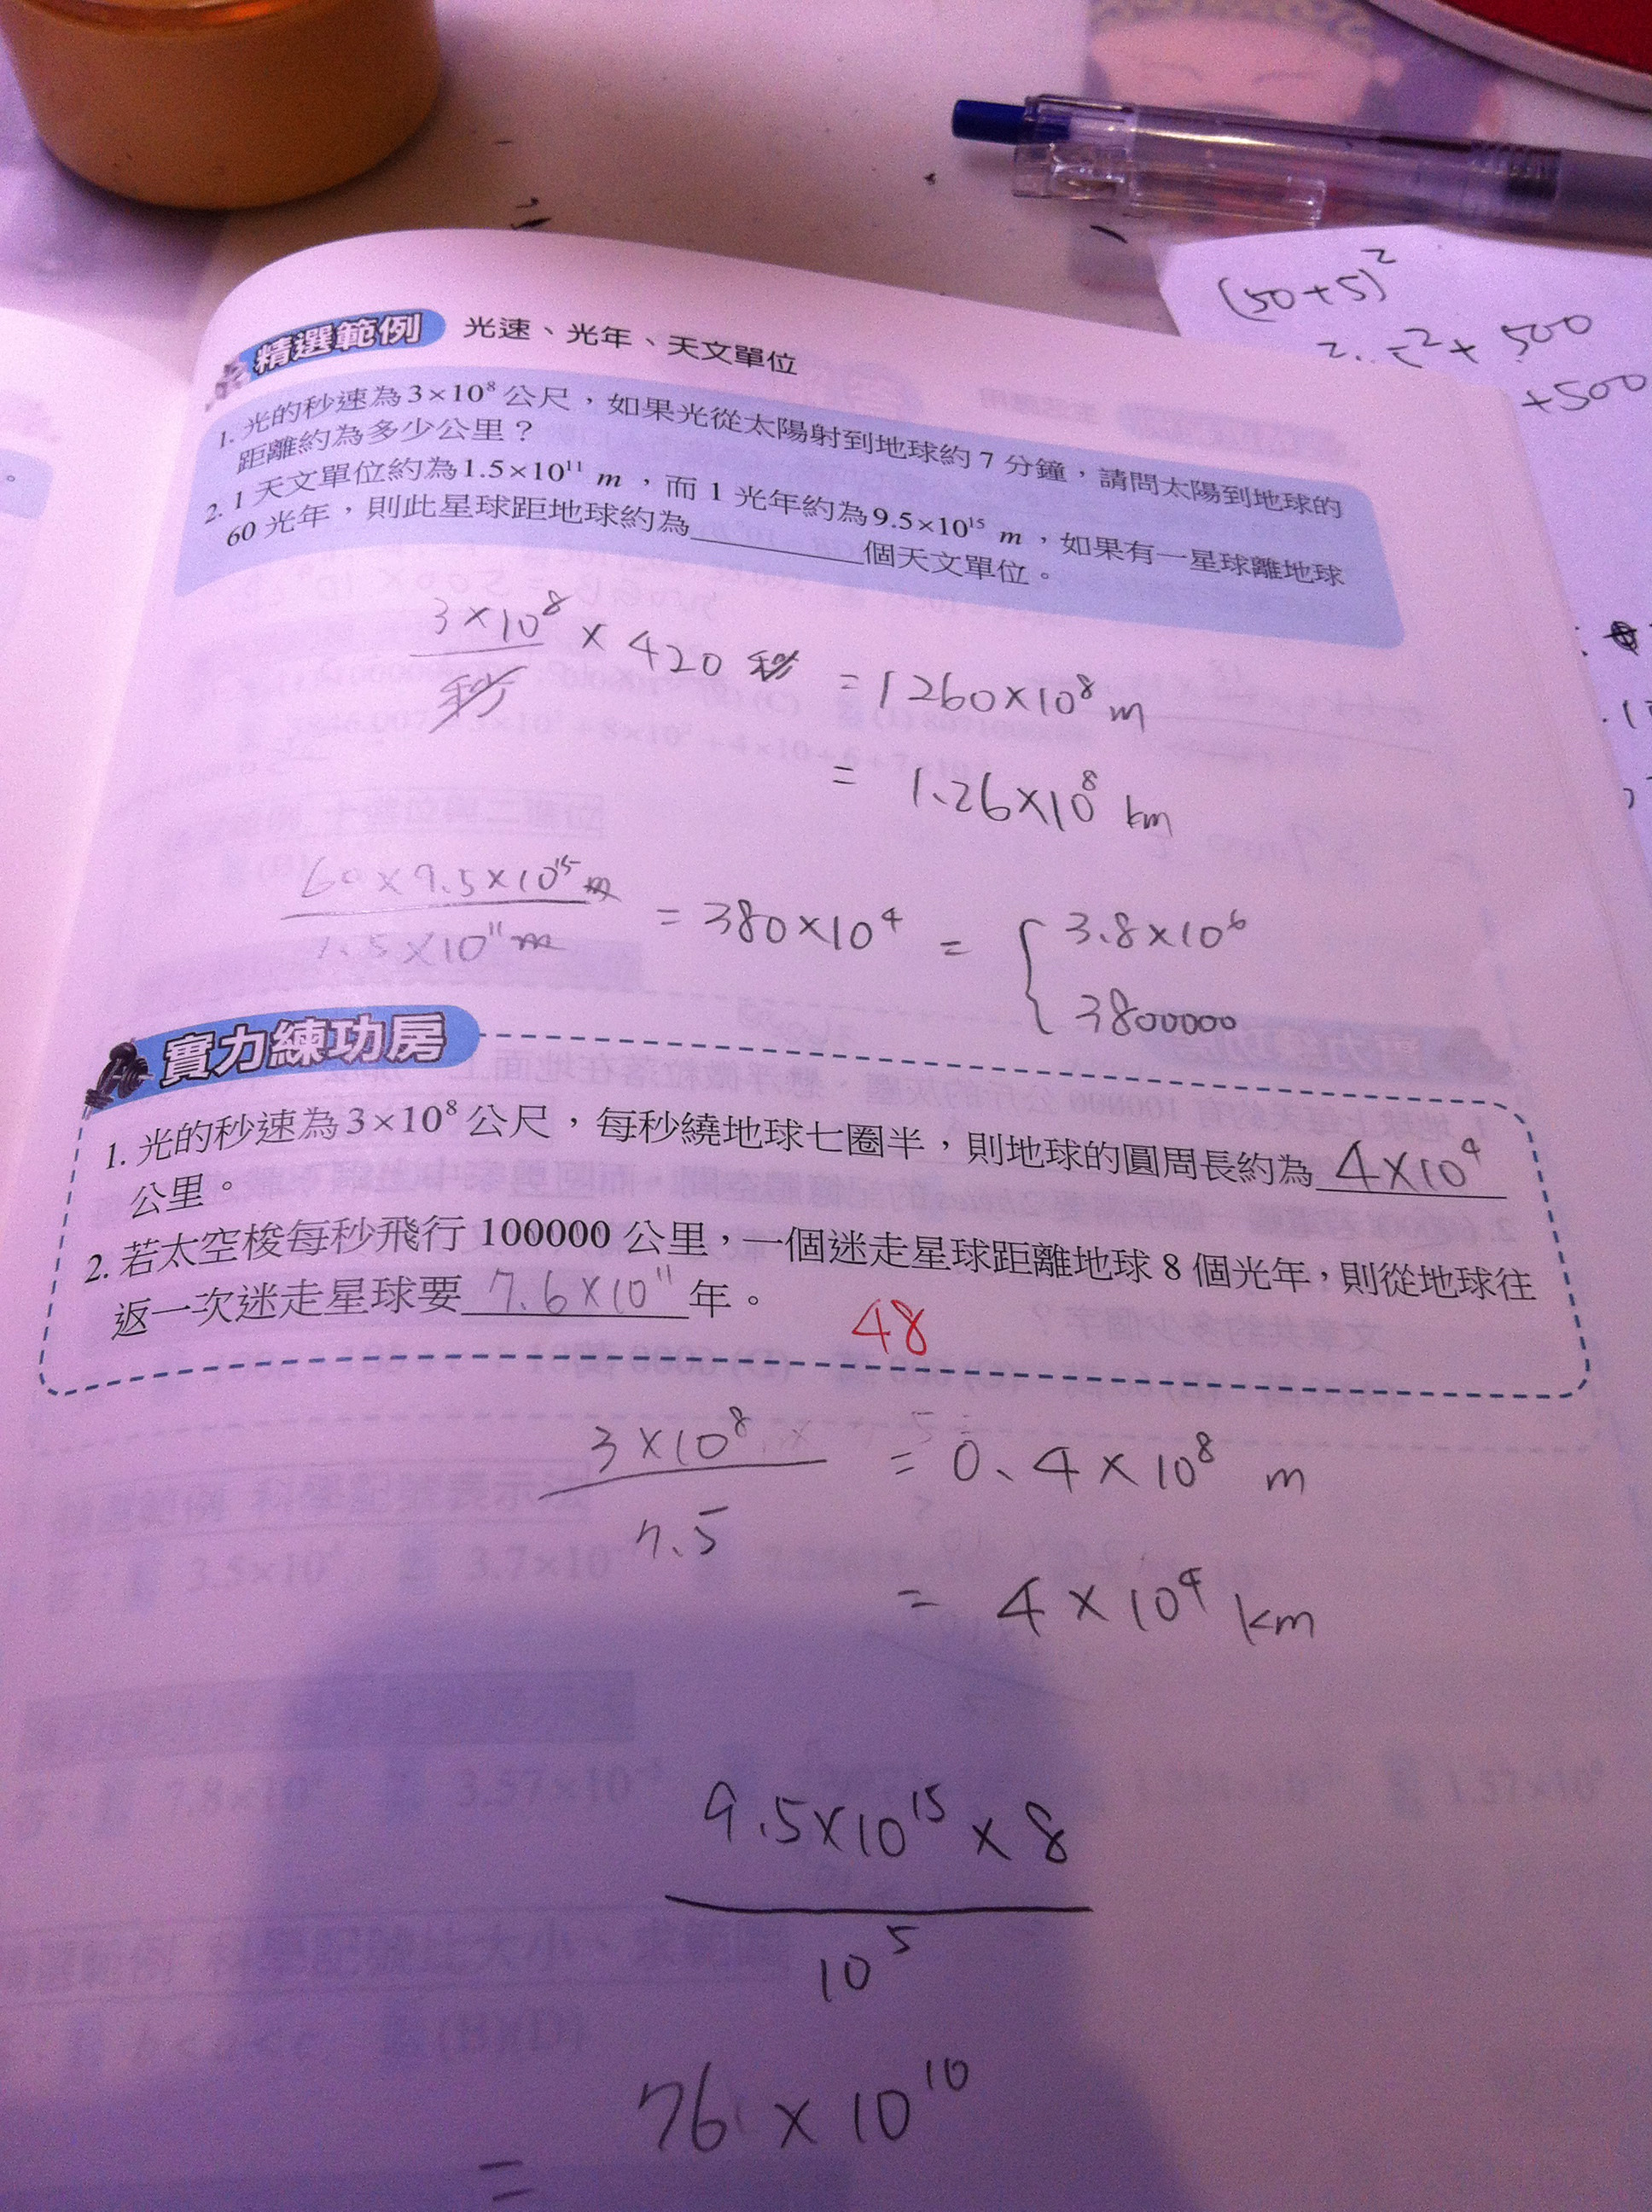 (50+5)²
+ 500
+500
精選範例 光速、光年、天文單位
1. 光的秒速為3×10⁸公尺，如果光從太陽射到地球約 7 分鐘，請問太陽到地球的
距離約為多少公里？
2. 1 天文單位約為1.5×10¹¹ m，而 1 光年約為9.5×10¹⁵ m，如果有一星球離地球
60 光年，則此星球距地球約為________個天文單位。
3×10⁸/秒 × 420 秒 = 1260×10⁸ m
= 1.26×10⁸ km
60×9.5×10¹⁵m/1.5×10¹¹m = 380×10⁴ = { 3.8×10⁶
3800000
實力練功房
1. 光的秒速為3×10⁸公尺，每秒繞地球七圈半，則地球的圓周長約為 4×10⁴
公里。
2. 若太空梭每秒飛行 100000 公里，一個迷走星球距離地球 8 個光年，則從地球往
返一次迷走星球要 7.6×10¹¹ 年。
48
3×10⁸/7.5 = 0.4×10⁸ m
= 4×10⁴ km
9.5×10¹⁵×8
10⁵
= 76×10¹⁰